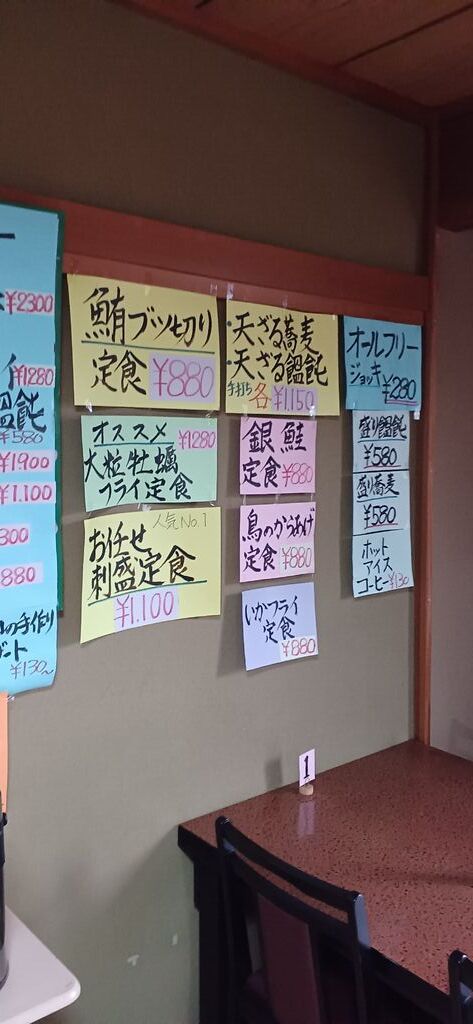 ¥2300
¥1280
饂飩
¥580
¥1900
¥1.100
300
880
の手作り
¥130~
鮪ブツ切り
定食 ¥880
オススメ ¥1280
大粒牡蠣
フライ定食
人気No.1
お任せ
刺盛定食
¥1.100
・天ざる蕎麦
・天ざる饂飩
手打ち 各 ¥1.150
銀鮭
定食 ¥880
鳥のからあげ
定食 ¥880
いかフライ
定食
¥880
オールフリー
ジョッキ ¥280
盛り饂飩
¥580
盛り蕎麦
¥580
ホット
アイス
コーヒー ¥130
1